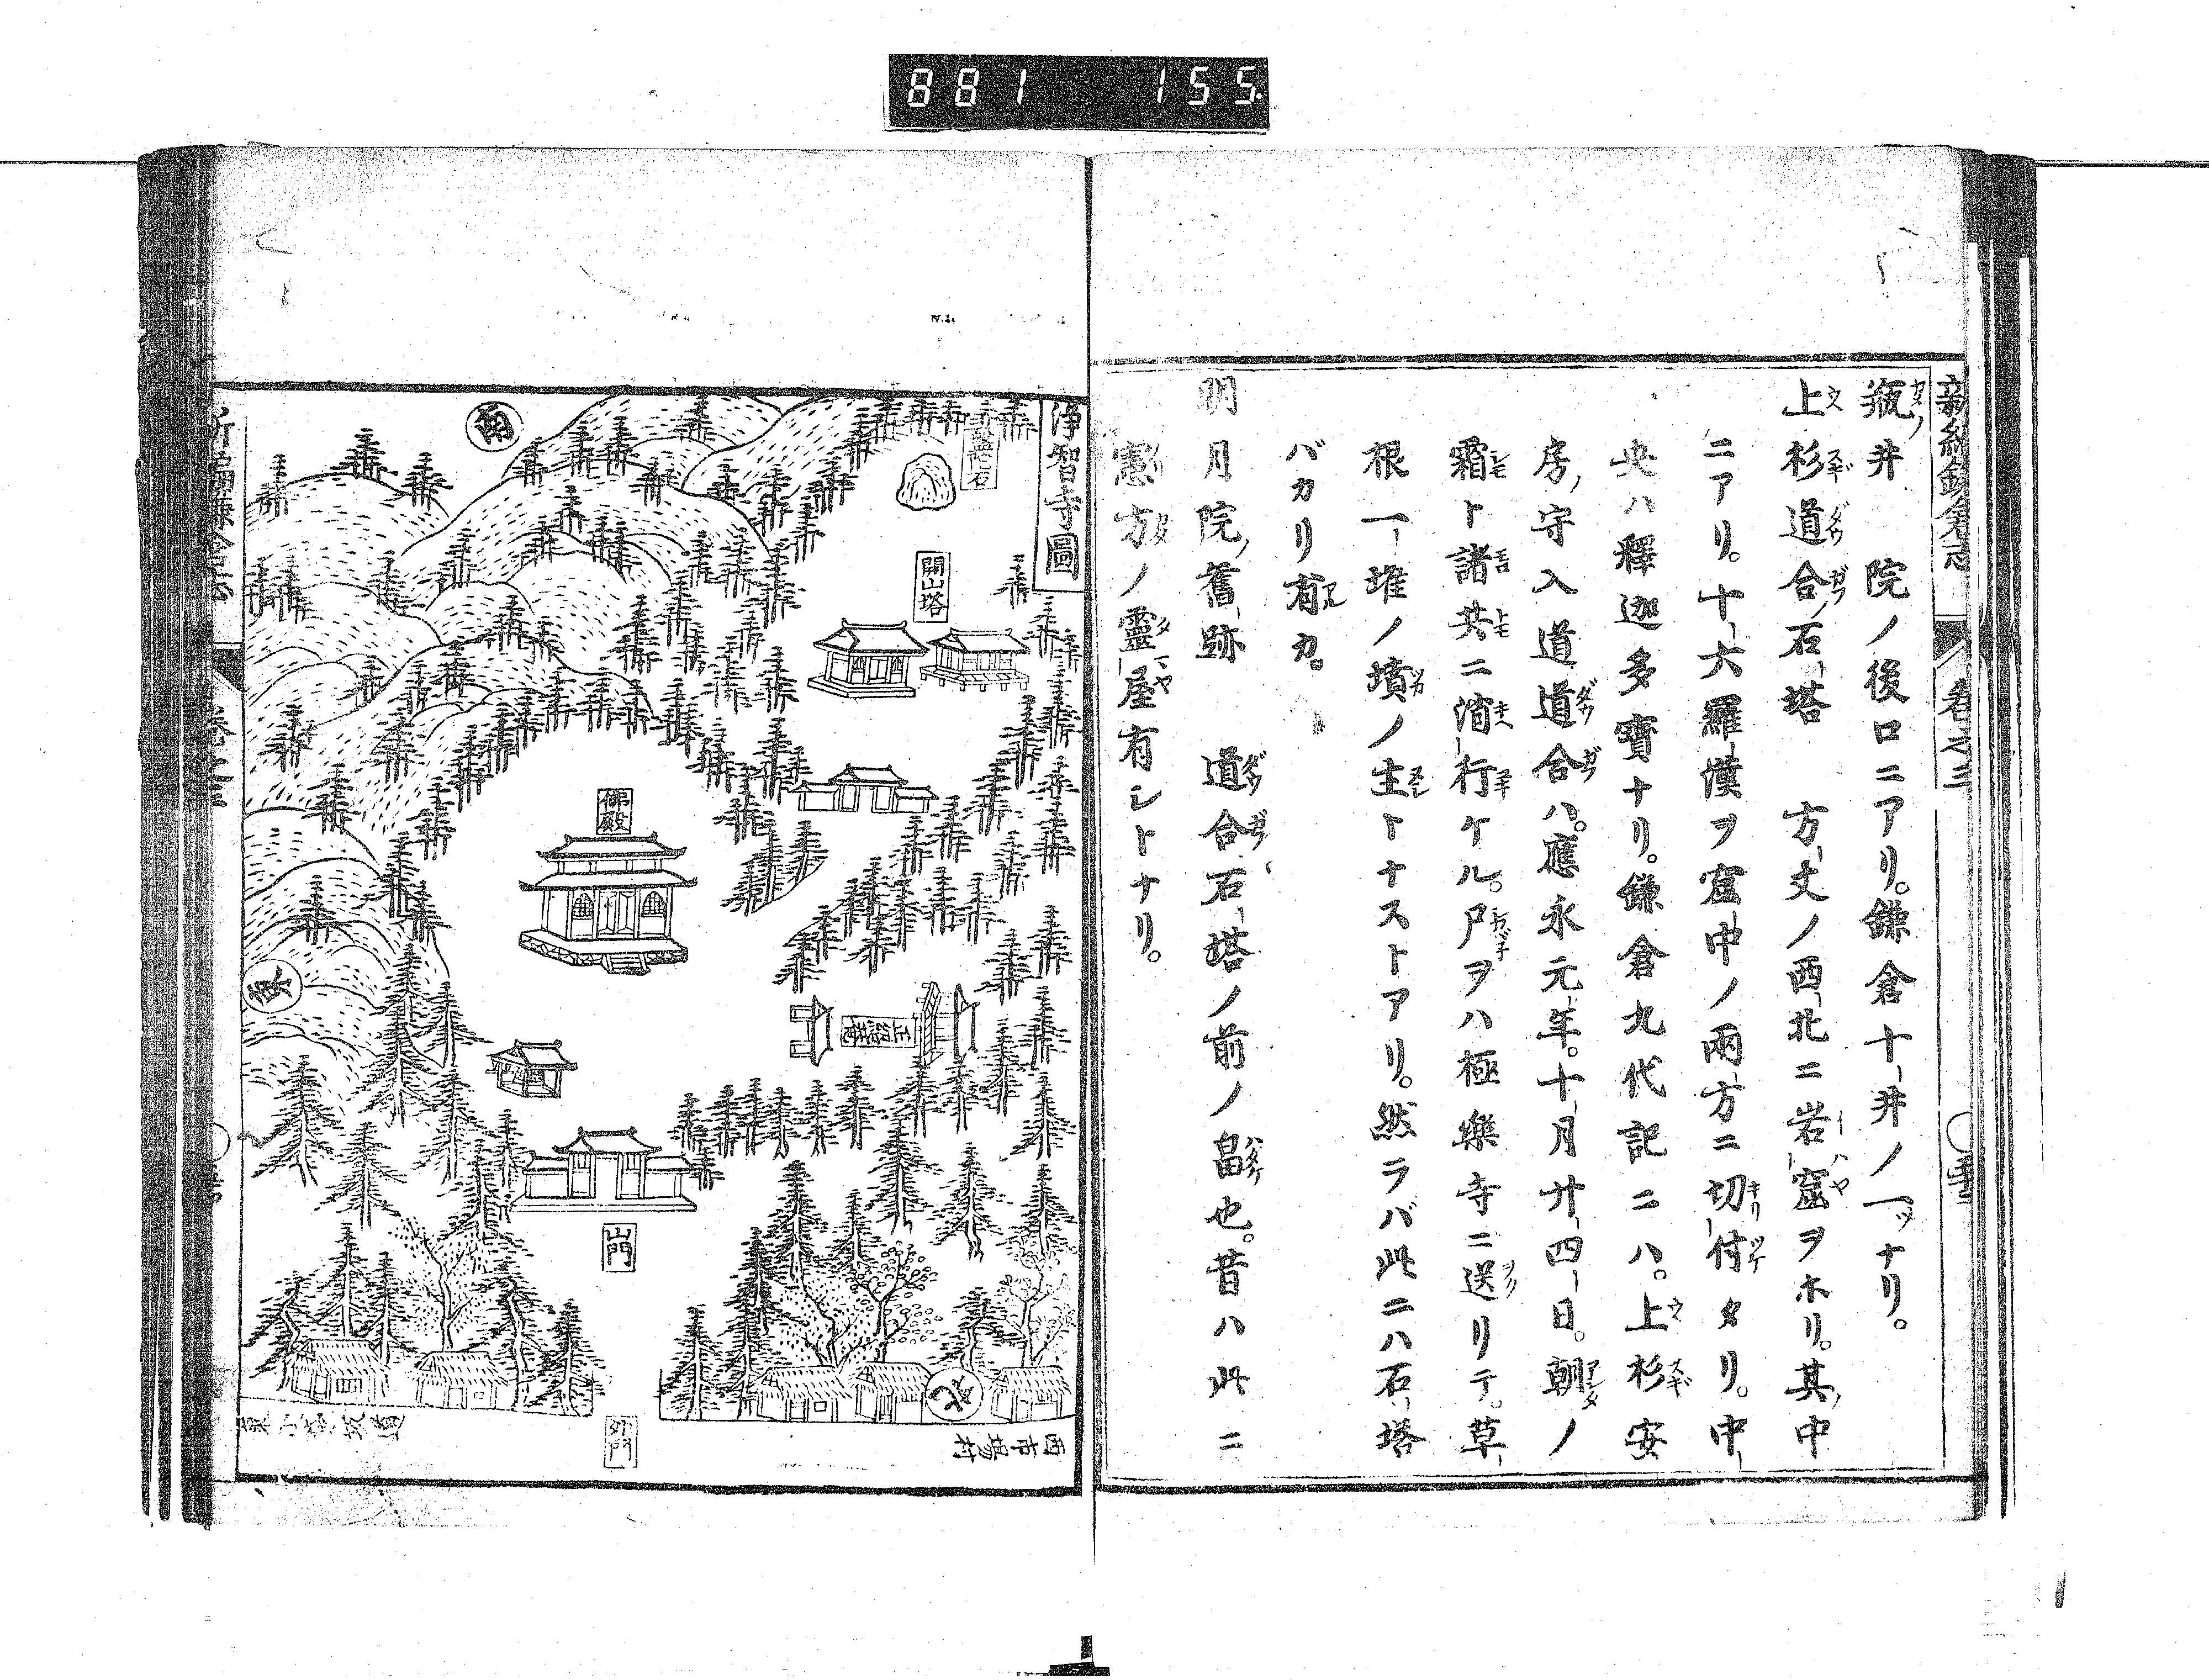 881 155.
新編鎌倉志
卷之三
瓶井 院ノ後口ニアリ。鎌倉十井ノ一ツナリ。
上杉道合石塔 方丈ノ西北ニ岩窟ヲホリ。其中
ニアリ。十六羅漢ヲ窟中ノ兩方ニ切付タリ。中
央ハ釋迦多寶ナリ。鎌倉九代記ニハ。上杉安
房守入道道合ハ。應永元年。十月廿四日。朝ノ
霜ト諸共ニ消行ケル。尸ヲハ極樂寺ニ送リテ。草
根一堆ノ墳ノ主トナストアリ。然ラバ此ニハ石塔
バカリ有カ。
明月院舊跡 道合石塔ノ前ノ畠也。昔ハ此ニ
憲方ノ靈屋有シトナリ。
淨智寺圖
開山塔
佛殿
正紹菴
山門
外門
西市場村
南
東
北